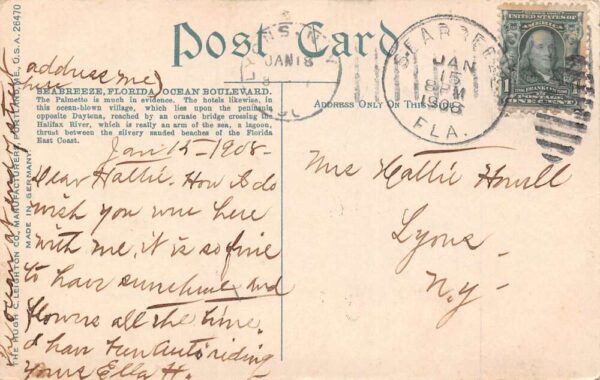 Post Card
address me
here
SEABREEZE, FLORIDA, OCEAN BOULEVARD.
The Palmetto is much in evidence. The hotels likewise, in
this ocean-blown village, which lies upon the peninsula
opposite Daytona, reached by an ornate bridge crossing the
Halifax River, which is really an arm of the sea, a lagoon,
thrust between the silvery sanded beaches of the Florida
East Coast.
ADDRESS ONLY ON THIS
Jan 15-1908-
Dear Hattie. How I do
wish you were here
with me, it is so fine
to have sunshine and
flowers all the time.
I have fun Auto riding
Yours Ella H.
the ocean at end of street
THE HUGH C. LEIGHTON CO., MANUFACTURERS, PORTLAND, ME., U.S.A. 26470
MADE IN GERMANY.
JAN 18
SEABREEZE
JAN
15
8 PM
1908
FLA.
UNITED STATES OF
AMERICA
1
ONE CENT
Mrs Hattie Howell
Lyons
N.Y-